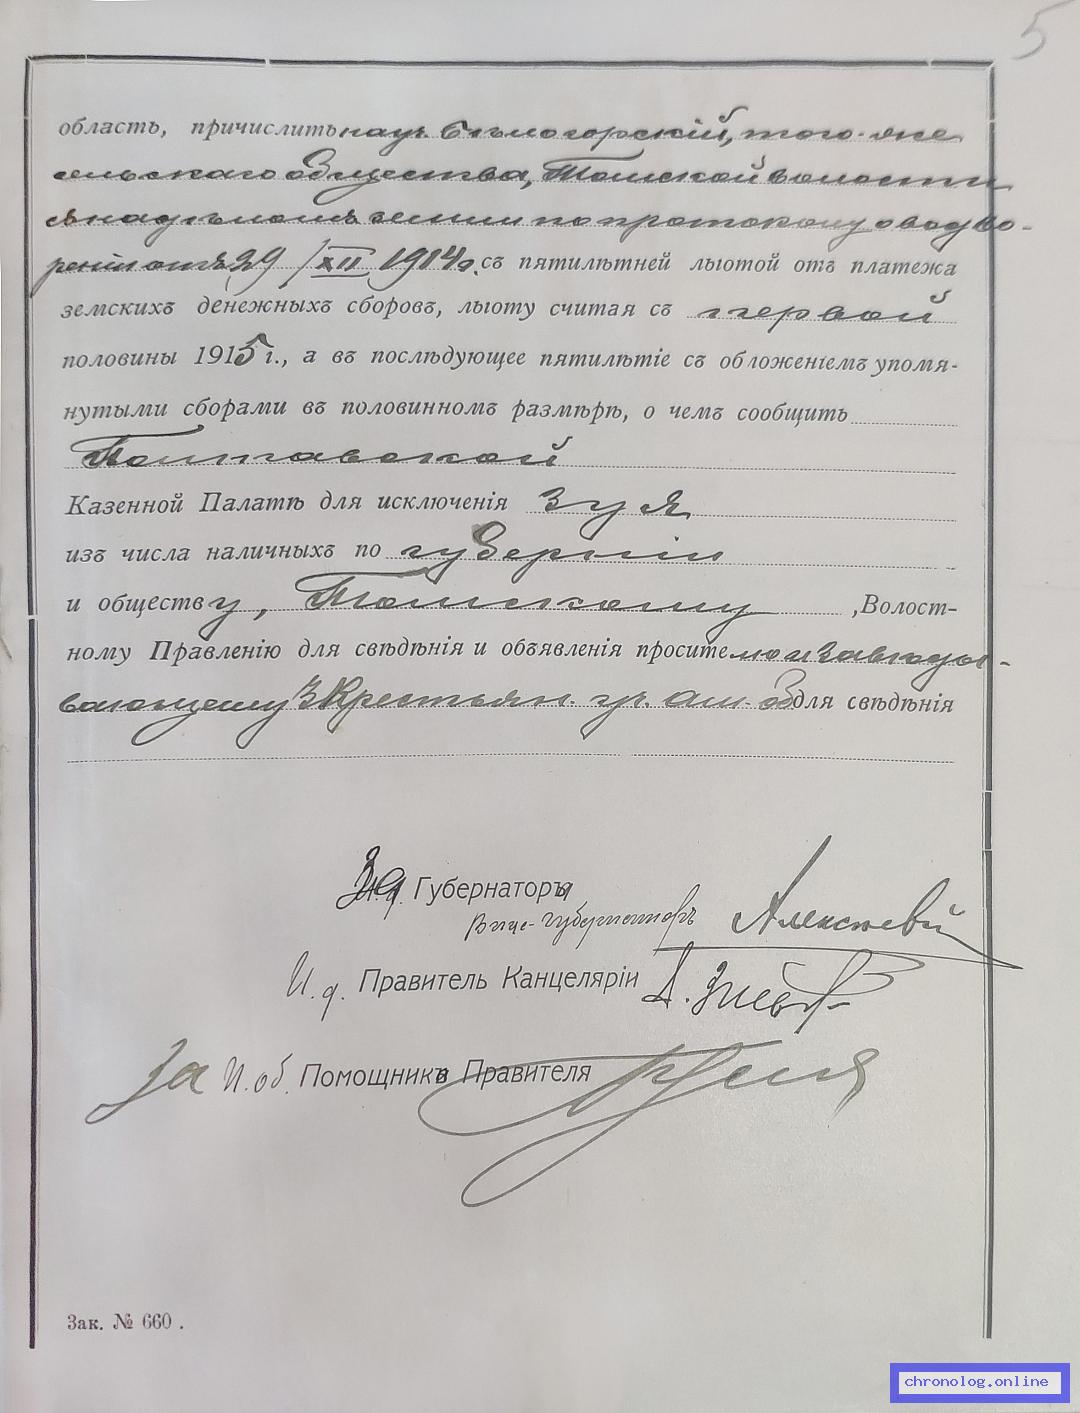 5
область, причислить на уч. Бѣлогорскій, того-же
сельскаго общества, Томской волости
съ надѣломъ земли по протоколу о водво-
реніи отъ 29/XII 1914г. съ пятилѣтней льготой отъ платежа
земскихъ денежныхъ сборовъ, льготу считая съ первой
половины 1915 г., а въ послѣдующее пятилѣтіе съ обложеніемъ упомя-
нутыми сборами въ половинномъ размѣрѣ, о чемъ сообщить
Полтавской
Казенной Палатѣ для исключенія Зуя
изъ числа наличныхъ по губерніи
и обществу, Томскому, Волост-
ному Правленію для свѣдѣнія и объявленія просителю и Завѣды-
вающему 3 Крестьян. уч. Ам. об для свѣдѣнія
За Губернатора
Вице-Губернаторъ
И. д. Правитель Канцеляріи
За И. об. Помощника Правителя
Зак. № 660.
chronolog.online